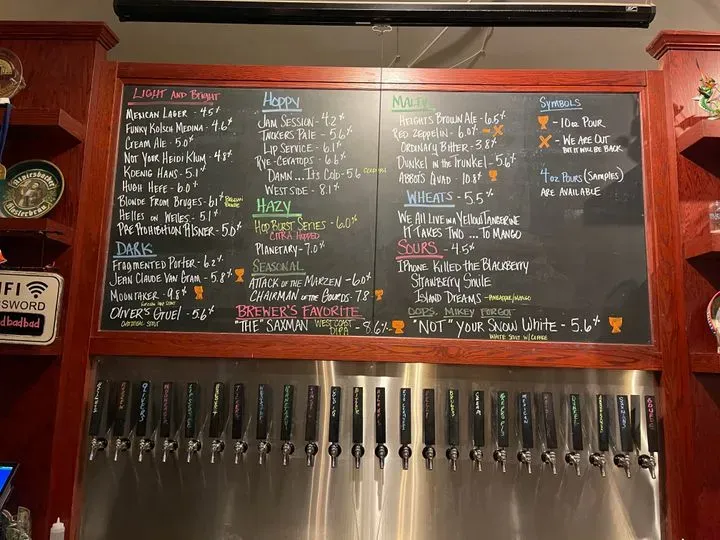 LIGHT AND BRIGHT
MEXICAN LAGER - 4.5%
FUNKY KOLSCH MEDINA - 4.6%
CREAM ALE - 5.0
NOT YOUR HEIDI KLUM - 4.8%
KOENIG HANS - 5.1%
HUGH HEFE - 6.0%
BLONDE FROM BRUGES - 6.1% BELGIAN BLONDE
HELLES ON WELLES - 5.1%
PRE PROHIBITION PILSNER - 5.0%
DARK
FRAGMENTED PORTER - 6.2%
JEAN CLAUDE VAN GRAM - 5.8%
MOONTAKER - 9.8%
OLIVER'S GRUEL - 5.6%
OATMEAL STOUT
HOPPY
JAM SESSION - 4.2%
TUCKERS PALE - 5.6%
LIP SERVICE - 6.1%
RYE-CERATOPS - 6.6%
DAMN...IT'S COLD - 5.6 COLD IPA
WEST SIDE - 8.1%
HAZY
HOP BURST SERIES - 6.0%
CITRA HOPPED
PLANETARY - 7.0%
SEASONAL
ATTACK OF THE MARZEN - 6.0%
CHAIRMAN OF THE GOURDS - 7.8%
BREWER'S FAVORITE
"THE" SAXMAN WEST COAST DIPA - 8.6%
MALTY
HEIGHTS BROWN ALE - 6.5%
RED ZEPPELIN - 6.0% - X
ORDINARY BITTER - 3.8%
DUNKEL IN THE TRUNKEL - 5.6%
ABBOTS QUAD - 10.8%
WHEATS - 5.5%
WE ALL LIVE IN A YELLOW TANGERINE
IT TAKES TWO... TO MANGO
SOURS - 4.5%
IPHONE KILLED THE BLACKBERRY
STRAWBERRY SMILE
ISLAND DREAMS - PINEAPPLE/MANGO
OOPS, MIKEY FORGOT
"NOT" YOUR SNOW WHITE - 5.6%
WHITE STOUT W/ COFFEE
SYMBOLS
- 10 OZ POUR
X - WE ARE OUT
BUT IT WILL BE BACK
4 OZ POURS (SAMPLES)
ARE AVAILABLE